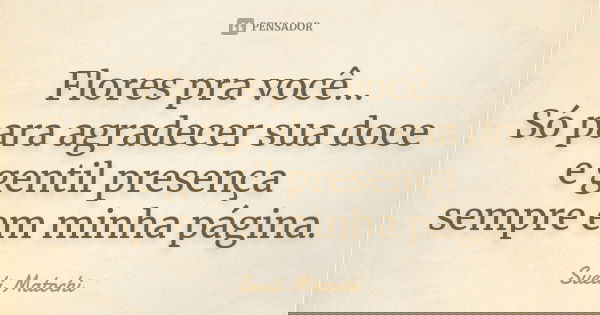 PENSADOR
Flores pra você...
Só para agradecer sua doce
e gentil presença
sempre em minha página.
Sueli Matochi